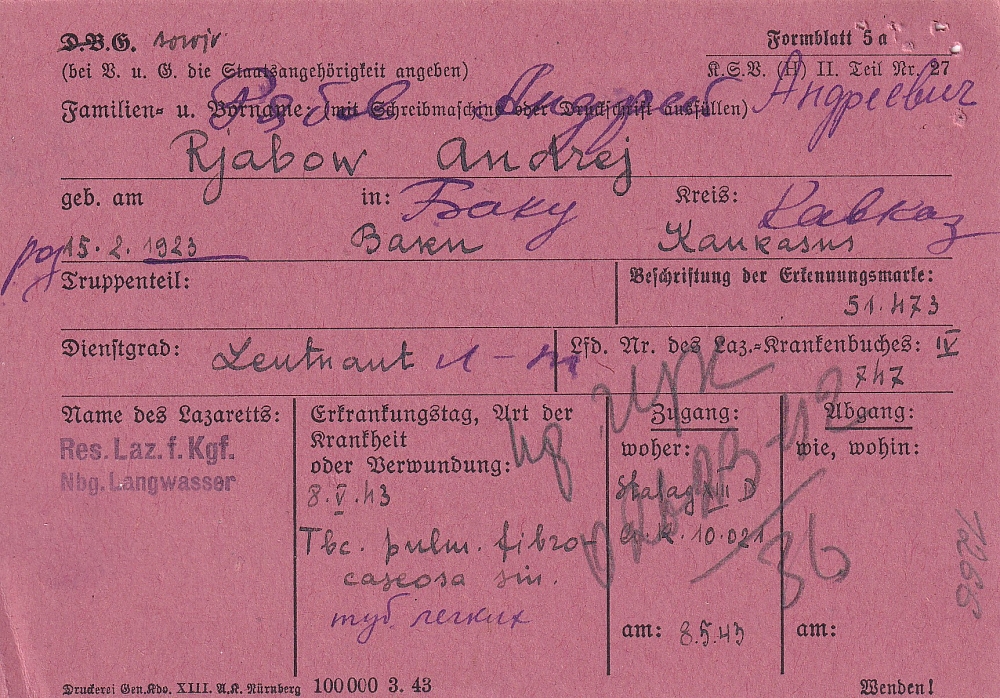 D.B.G. sowj.
Formblatt 5 a
(bei V. u. G. die Staatsangehörigkeit angeben)
K.S.V. (H) II. Teil Nr. 27
Рябов Андрей Андреевич
Familien- u. Vorname: (mit Schreibmaschine oder Druckschrift ausfüllen)
Rjabow Andrej
geb. am in: Баку Kreis: Кавказ
15. 2. 1923 Baku Kaukasus
Truppenteil:
Beschriftung der Erkennungsmarke:
51.473
Dienstgrad: Leutnant л-т
Lfd. Nr. des Laz.-Krankenbuches: IV
747
Name des Lazaretts:
Res. Laz. f. Kgf.
Nbg. Langwasser
Erkrankungstag, Art der
Krankheit
oder Verwundung:
8.V.43
Tbc. pulm. fibro-
caseosa sin.
туб легких
Zugang:
woher:
Stalag XIII D
G.K. 10.021
am: 8.5.43
Abgang:
wie, wohin:
am:
36
Druckerei Gen.Kdo. XIII. A.K. Nürnberg 100000 3. 43
Wenden!